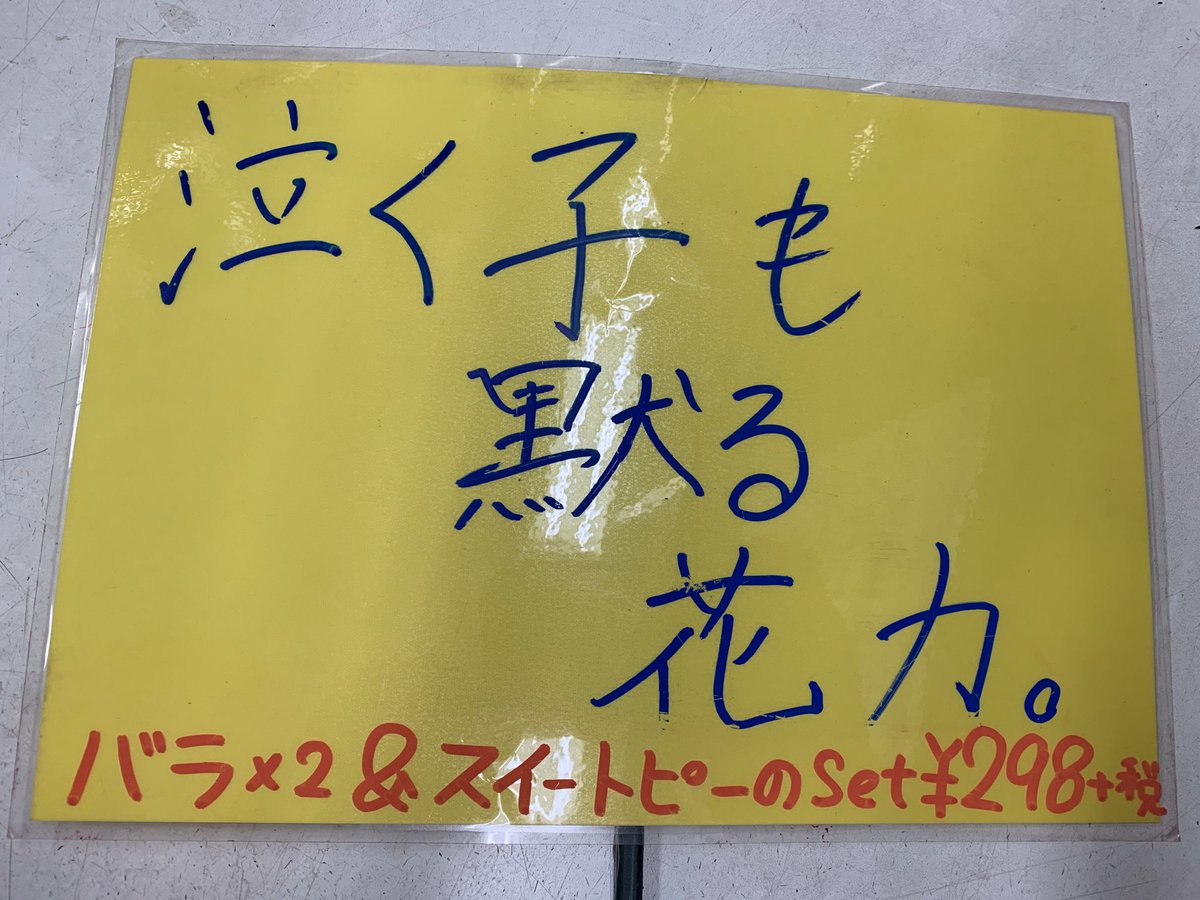 泣く子も
黙る
花力。
バラ×2&スイートピーのset¥298+税